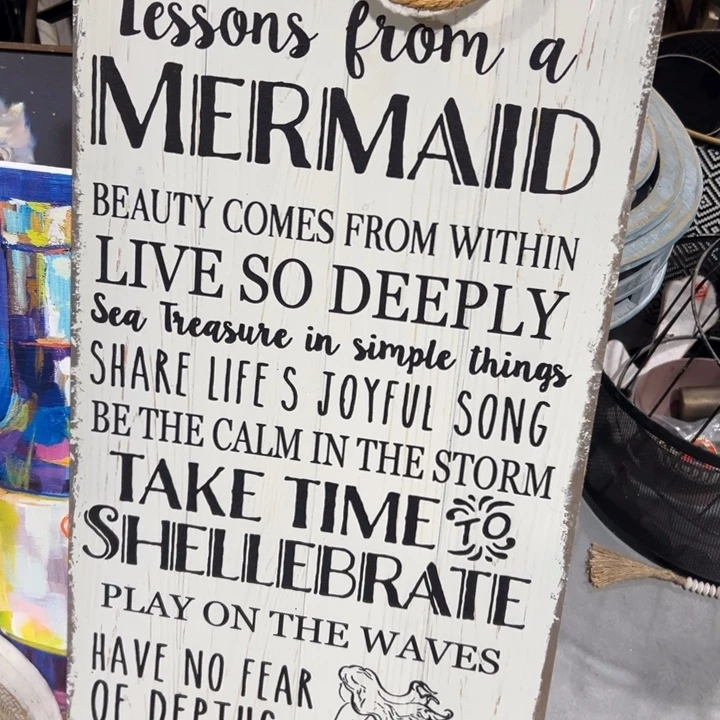 Lessons from a
MERMAID
BEAUTY COMES FROM WITHIN
LIVE SO DEEPLY
Sea Treasure in simple things
SHARE LIFE S JOYFUL SONG
BE THE CALM IN THE STORM
TAKE TIME TO
SHELLEBRATE
PLAY ON THE WAVES
HAVE NO FEAR
OF DEPTHS